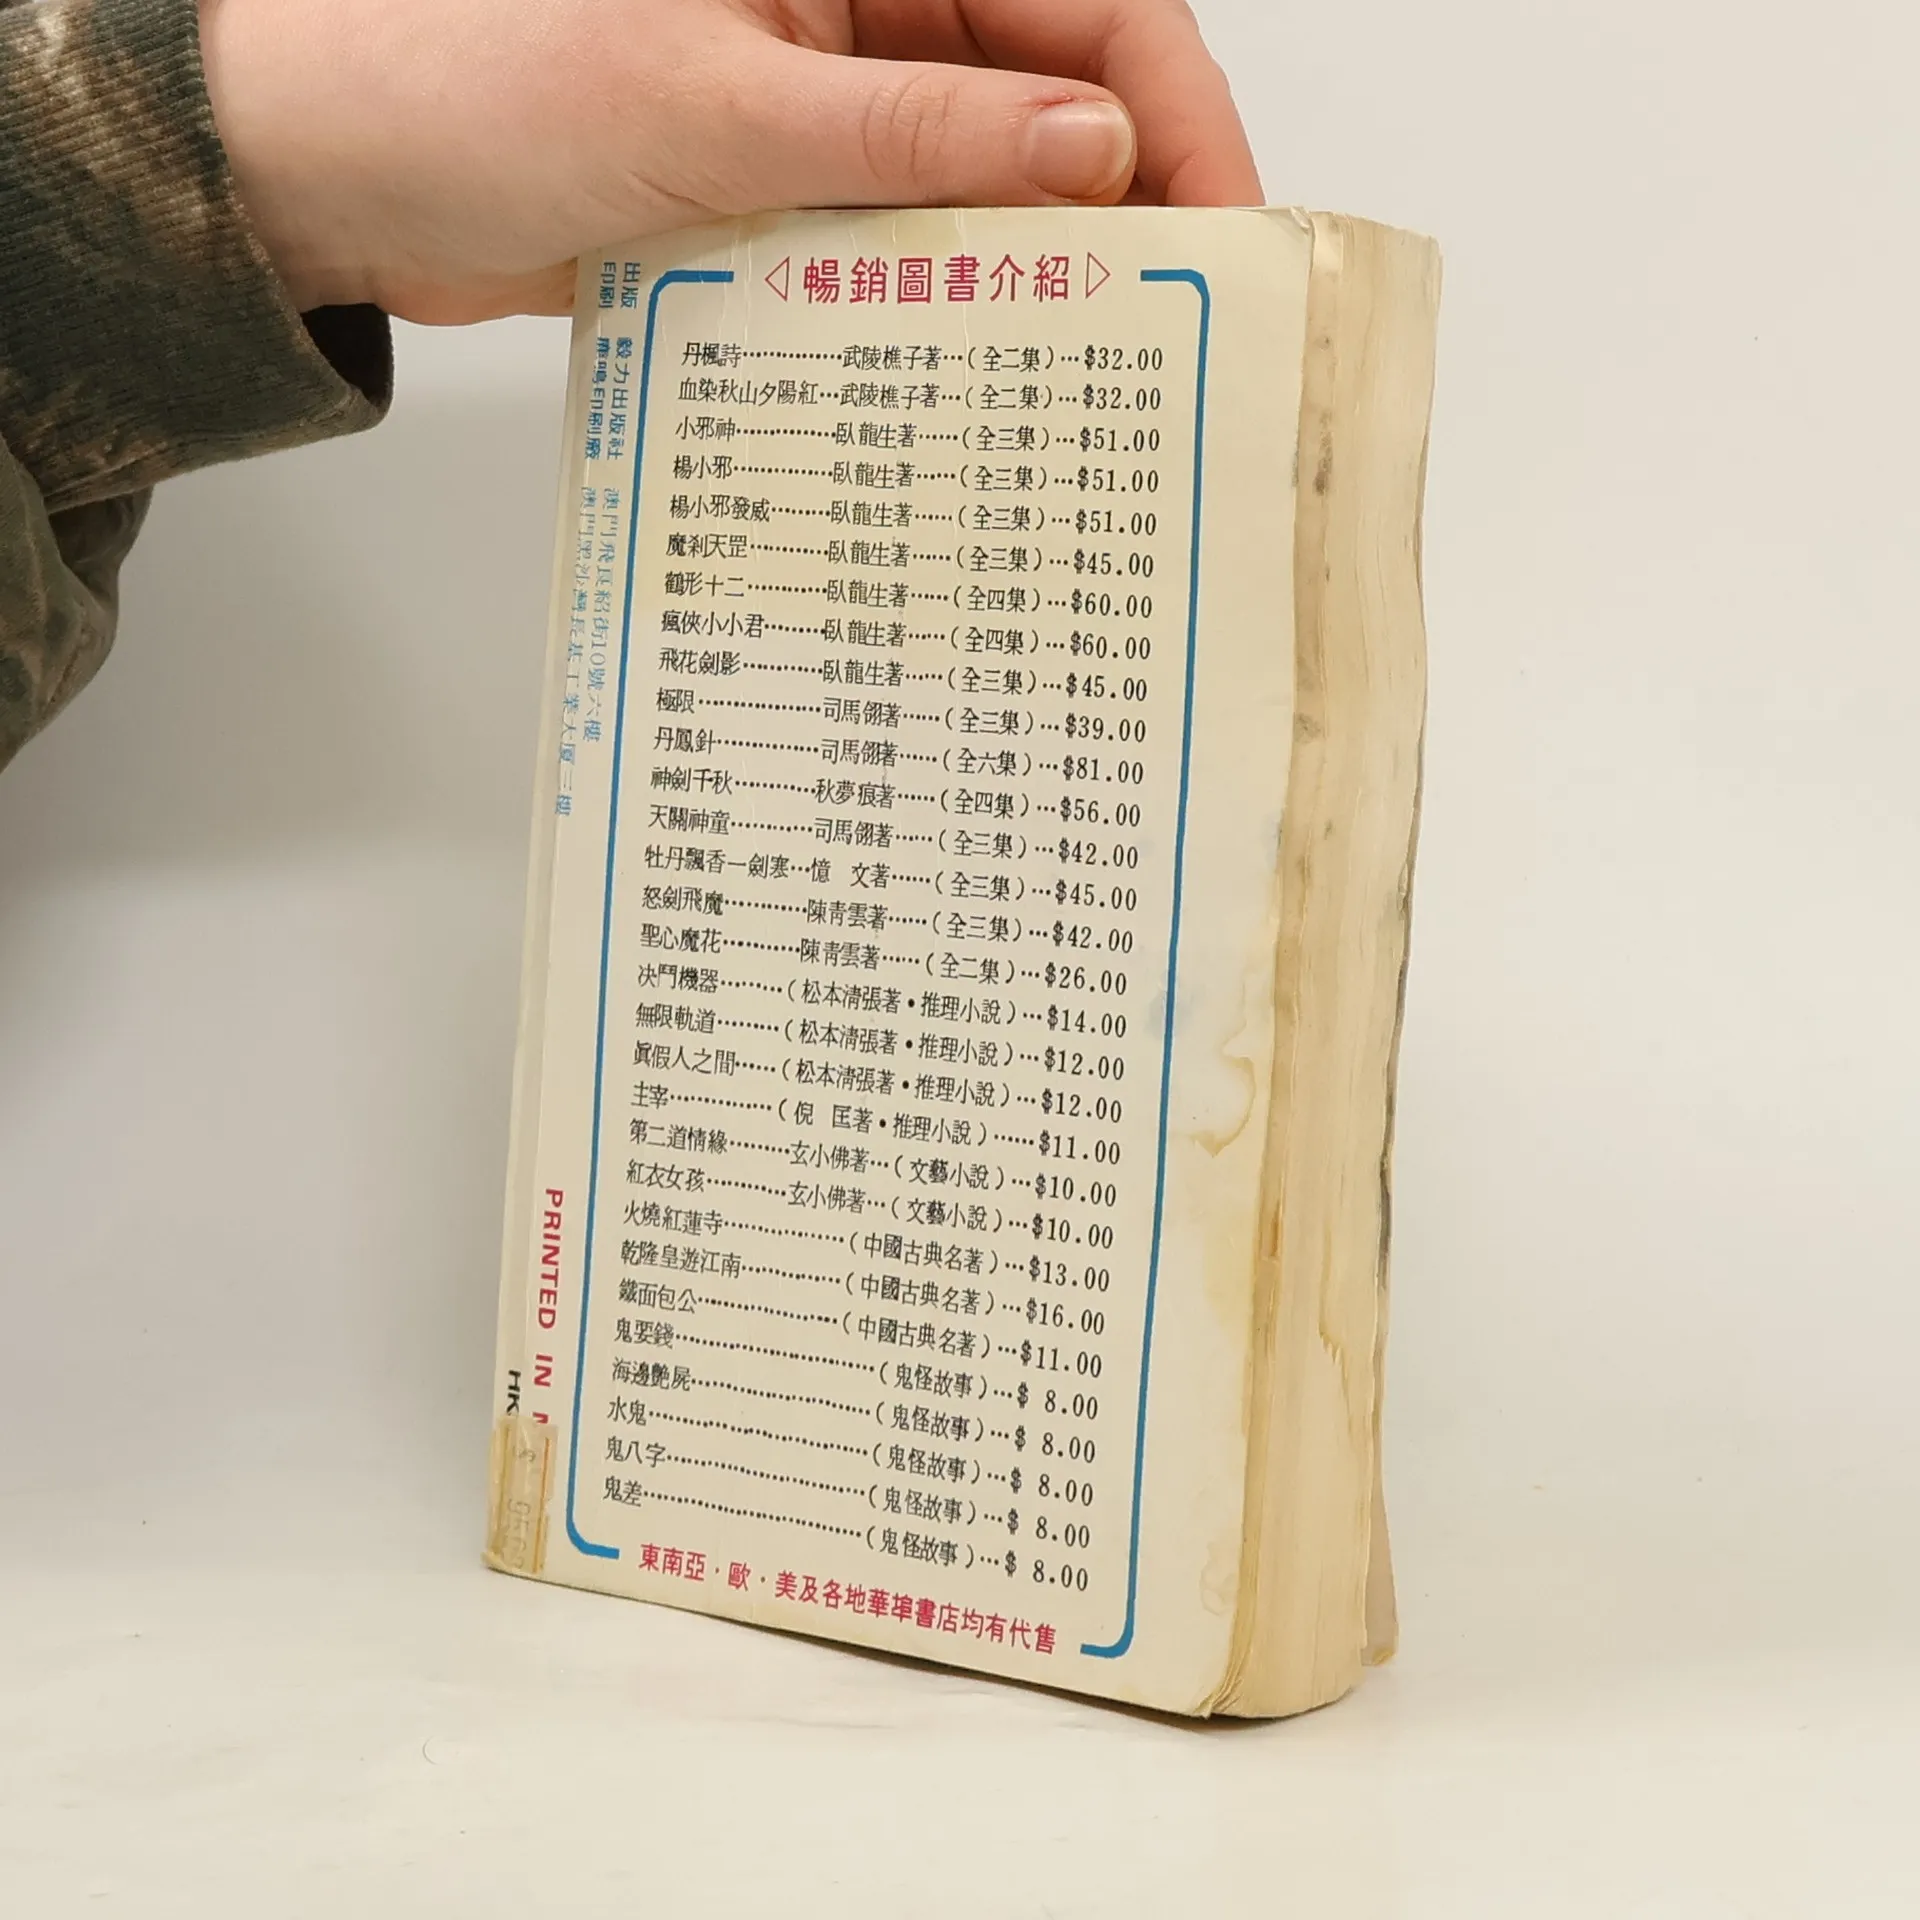 ◁暢銷圖書介紹▷
丹楓詩……………武陵樵子著…(全二集)…$32.00
血染秋山夕陽紅…武陵樵子著…(全二集)…$32.00
小邪神……………臥龍生著……(全三集)…$51.00
楊小邪……………臥龍生著……(全三集)…$51.00
楊小邪發威………臥龍生著……(全三集)…$51.00
魔刹天罡…………臥龍生著……(全三集)…$45.00
鶴形十二…………臥龍生著……(全四集)…$60.00
瘋俠小小君………臥龍生著……(全四集)…$60.00
飛花劍影…………臥龍生著……(全三集)…$45.00
極限………………司馬翎著……(全三集)…$39.00
丹鳳針……………司馬翎著……(全六集)…$81.00
神劍千秋…………秋夢痕著……(全四集)…$56.00
天關神童…………司馬翎著……(全三集)…$42.00
牡丹飄香一劍寒…憶 文著……(全三集)…$45.00
怒劍飛魔…………陳青雲著……(全三集)…$42.00
聖心魔花…………陳青雲著……(全二集)…$26.00
决鬥機器………(松本清張著•推理小說)…$14.00
無限軌道………(松本清張著•推理小說)…$12.00
眞假人之間……(松本清張著•推理小說)…$12.00
主宰……………(倪 匡著•推理小說)……$11.00
第二道情緣………玄小佛著…(文藝小說)…$10.00
紅衣女孩…………玄小佛著…(文藝小說)…$10.00
火燒紅蓮寺………………(中國古典名著)…$13.00
乾隆皇遊江南……………(中國古典名著)…$16.00
鐵面包公…………………(中國古典名著)…$11.00
鬼要錢…………………………(鬼怪故事)…$ 8.00
海邊艷屍………………………(鬼怪故事)…$ 8.00
水鬼……………………………(鬼怪故事)…$ 8.00
鬼八字…………………………(鬼怪故事)…$ 8.00
鬼差……………………………(鬼怪故事)…$ 8.00
東南亞·歐·美及各地華埠書店均有代售
出版 毅力出版社 澳門飛良紹街10號六樓
印刷 鹿鳴印刷廠 澳門黑沙灣長基工業大厦三樓
PRINTED IN
HK